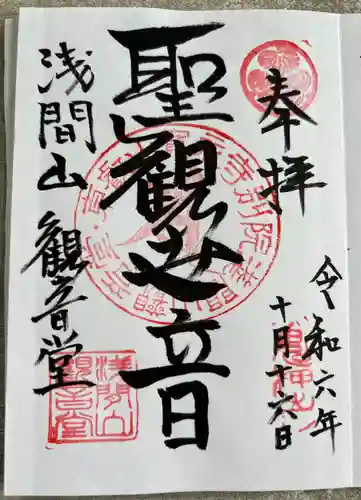 奉拝
令和六年
十月十六日
聖観世音
浅間山
観音堂
浅間山
観音堂